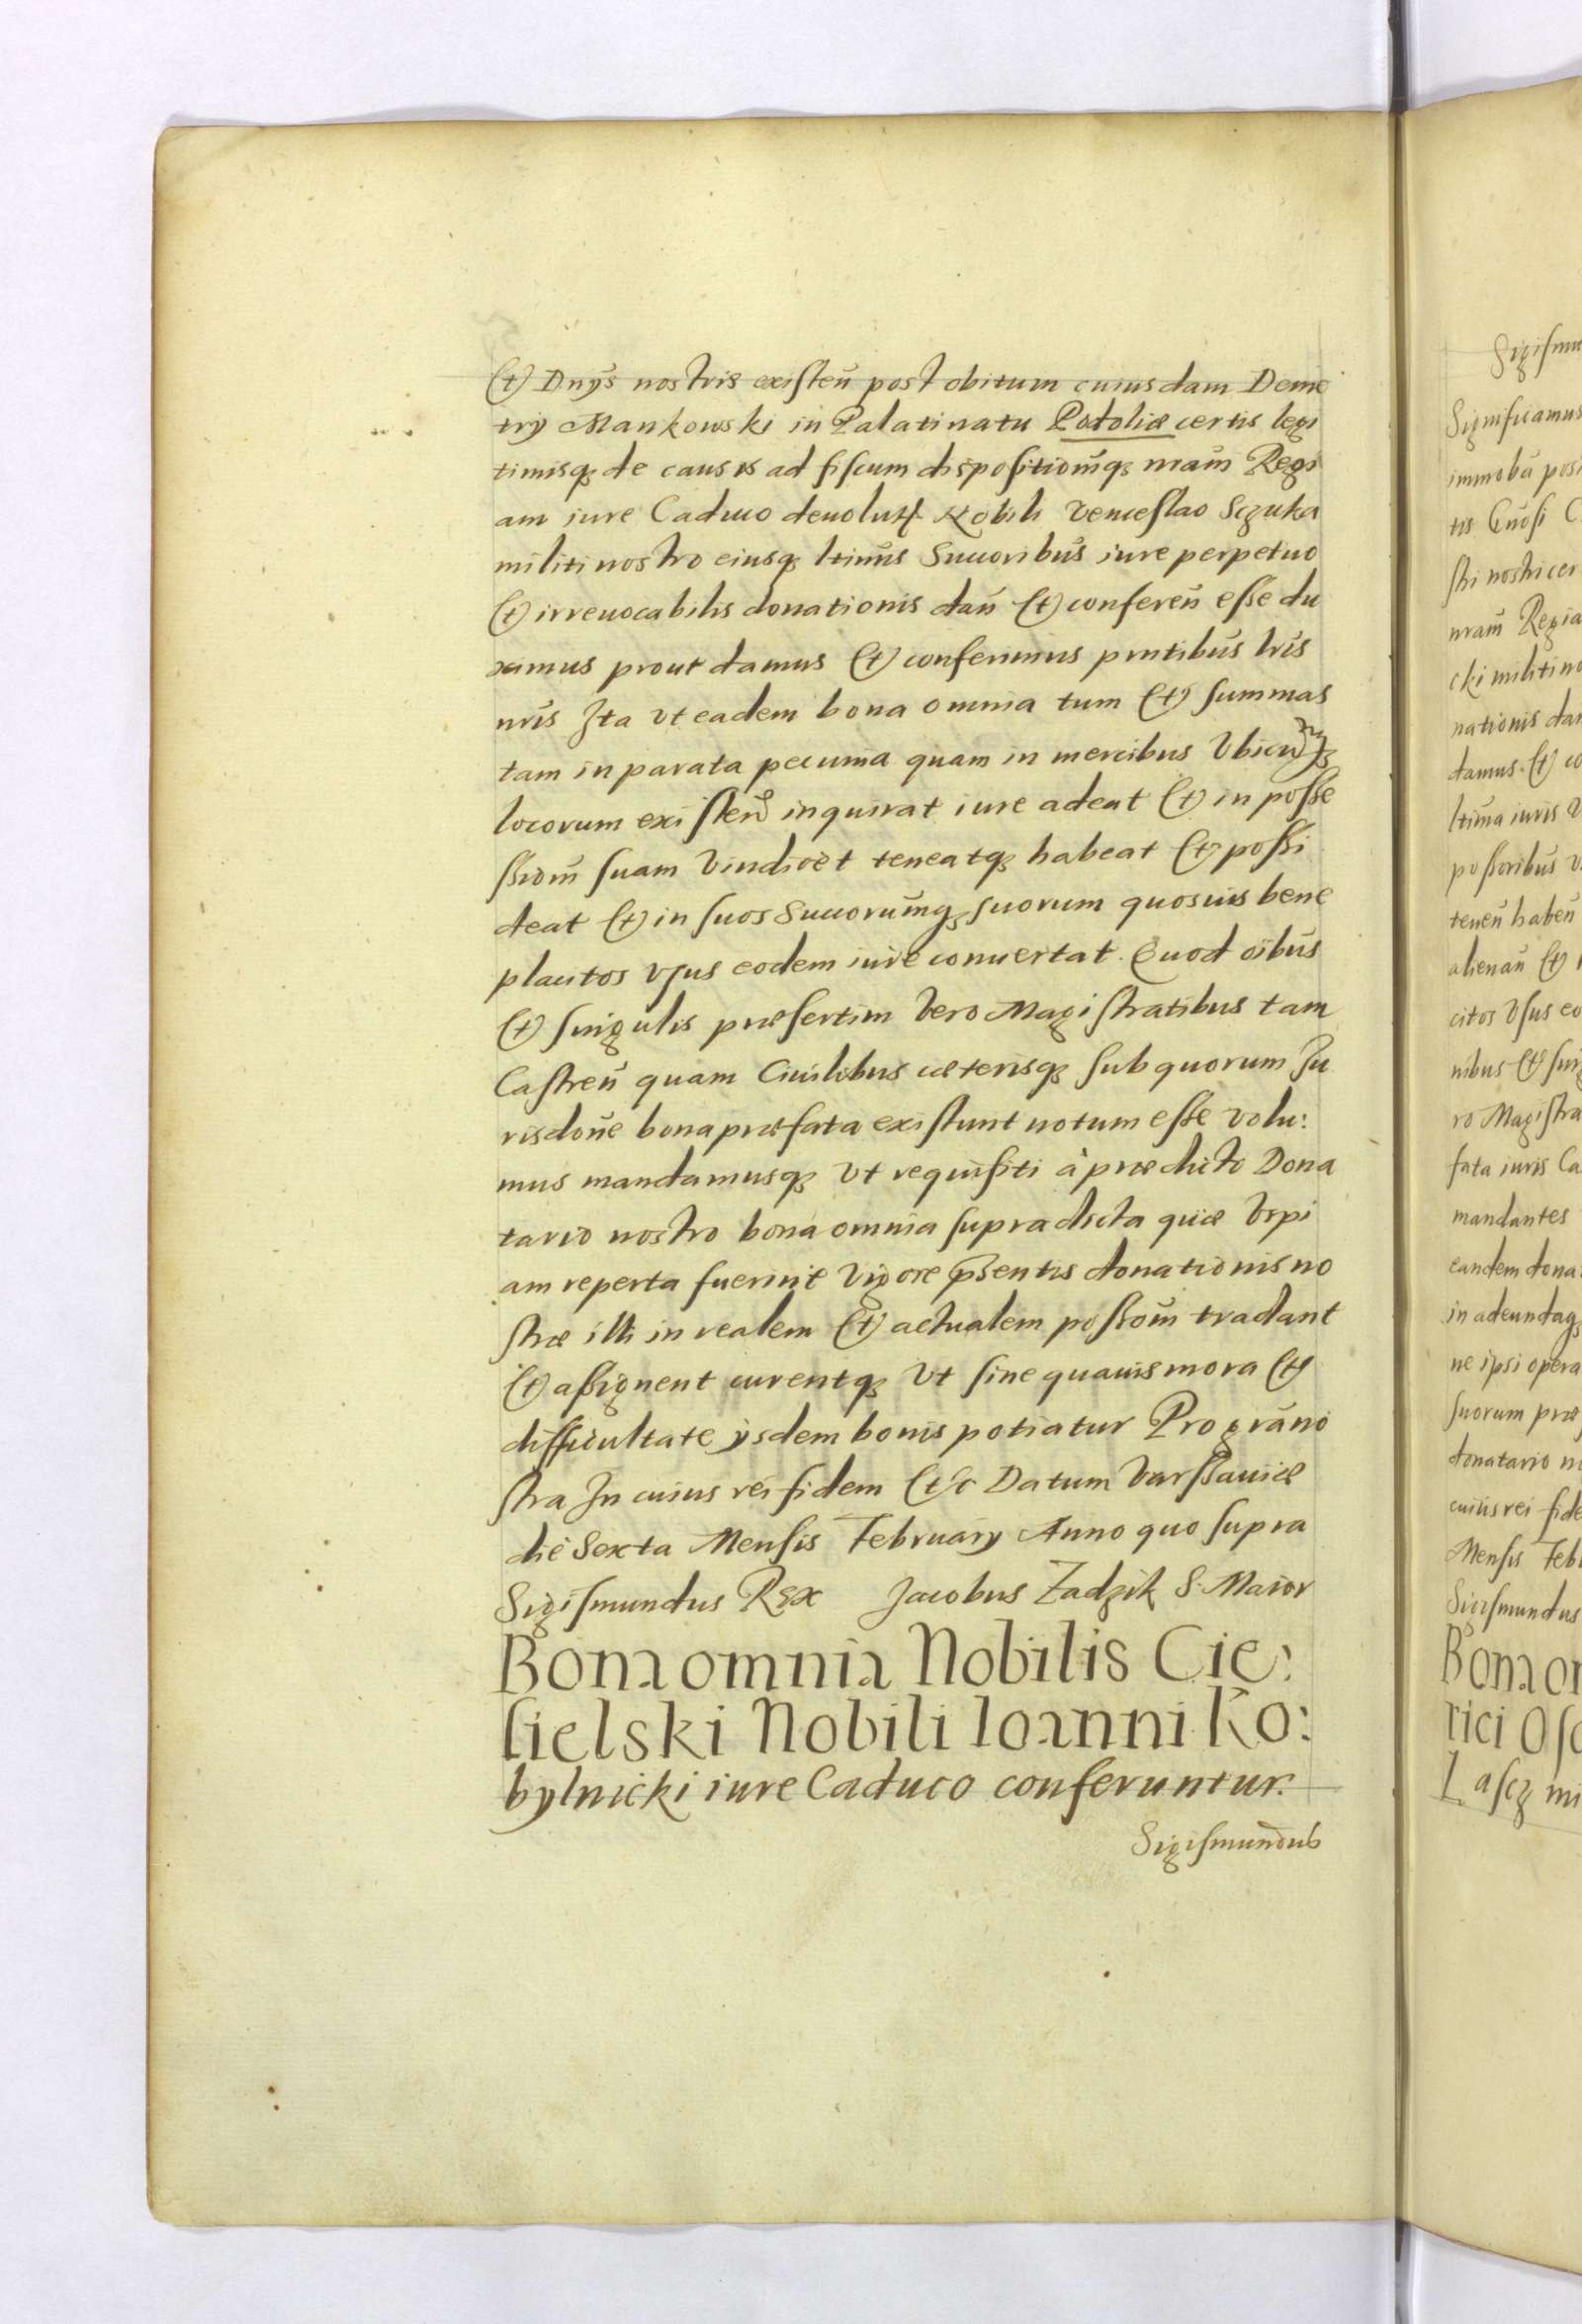 (et) Dnÿs nostris existen̄ post obitum cuiusdam Deme
trÿ Mankowski in Palatinatu Podoliæ certis legi
timisq₃ de causis ad fiscum dispositiom̄q₃ nram̄ Regi
am iure Caduco deuolut Nobili Venceslao Sczuka
militi nostro eiusq₃ ltimis̄ Succoribus̄ iure perpetuo
(et) irreuocabilis donationis dan̄ (et) conferen̄ esse du
ximus prout damus (et) conferimus pntibus̄ lris̄
nris̄ Ita vt eadem bona omnia tum (et) summas
tam in parata pecunia quam in mercibus Vbicunq₃
locorum existen̄ inquirat iure adeat (et) in posse
ssiom̄ suam Vindicet teneatq₃ habeat (et) possi
deat (et) in suos Succorum̄q₃ suorum quosuis bene
placitos vsus eodem iure conuertat. Quod oībus
(et) singulis præsertim Vero Magistratibus tam
Castren̄ quam Ciuilibus cæterisq₃ sub quorum Iu
risdōne bona præfata existunt notum esse volu:
mus mandamusq₃ Vt requisiti à prædicto Dona
tario nostro bona omnia supradicta quæ Vspi
am reperta fuerint Vigore p̄sentis donationis no
stræ illi in realem (et) actualem possom̄ tradant
(et) assignent curentq₃ Vt sine quauis mora (et)
difficultate ÿsdem bonis potiatur Pro grā no
stra In cuius rei fidem (et)c Datum Varssauiæ
die Sexta Mensis Februarÿ Anno quo supra
Sigismundus Rex Jacobus Zadzik S. Maior
Bona omnia Nobilis Cie:
sielski Nobili Ioanni Ko:
bylnicki iure Caduco conferuntur.
Sigismundus
Sigismu
Significamus
immoba posi
tis
stri nostri cer
nram̄ Regia
cki militi no
nationis dan
damus (et) co
ltima iuris V
possoribus v
tenen̄ haben̄
alienan̄ (et)
citos Vsus eo
nibus (et) sing
ro Magistra
fata iuris Ca
mandantes
eandem dona
in adeundaq₃
ne ipsi opera
suorum præ
donatario no
cuius rei fide
Mensis Feb
Sigismundus
Bona om
rici Os
Lascz mi